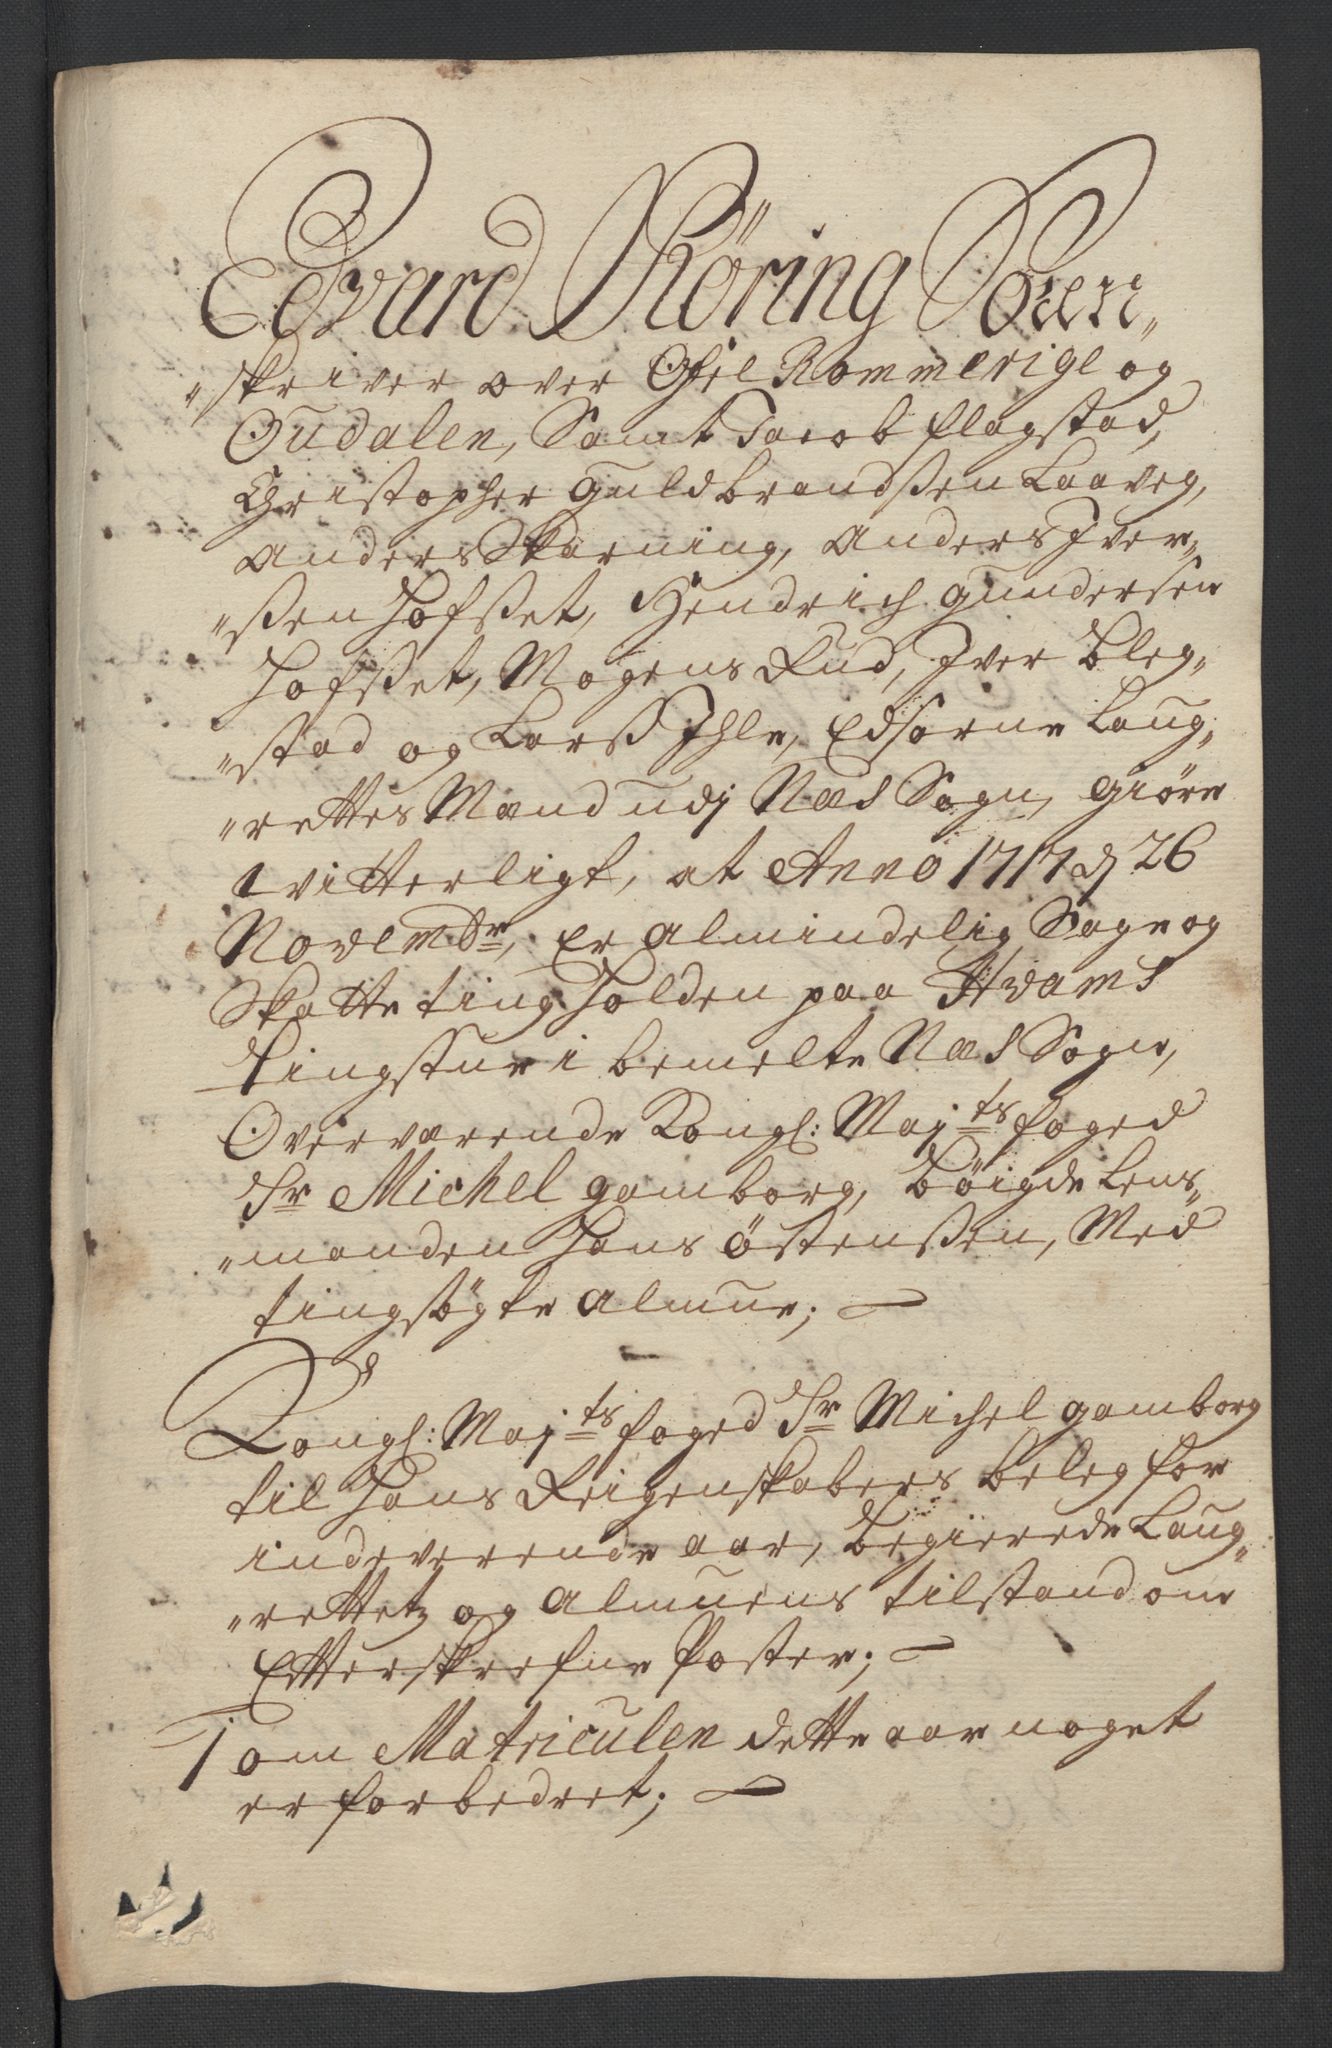 Edvard Röring Soren„
„skriver over Øfre Rommerige og
Oudalen, Samt Jacob flagstad,
Christopher Guldbrandßen Laaveg,
Anders Skarning, Anders Iver„
„ßen Hofßet, Hendrich Gundersen
Hofßet, Mogens Rud, Iver Bleg„
„stad og Larß Ihle, Edsorne Laug„
„rettes Mænd udj Næs Sogn, giöre
witterligt, at Anno 1717 d 26
Novembr, Er Almindelig Sage og
Skatte ting Holden paa Hvams
Tingstue i bemelte Næs Sogn,
Overværende Kongl: Majts foged
Sr Michel Gamborg, Böigde Lens„
„manden Hans Östenßen, Med
tingsögte Almue;
Kongl: Majts foged Sr Michel Gamborg
til Hans Reigenskabers beleg for
indeverende aar, Begierede Laug„
„rettetz og Almuens tilstand om
Efterskrefne Poster;
1 om Matriculen dette aar noget
er forbedret;